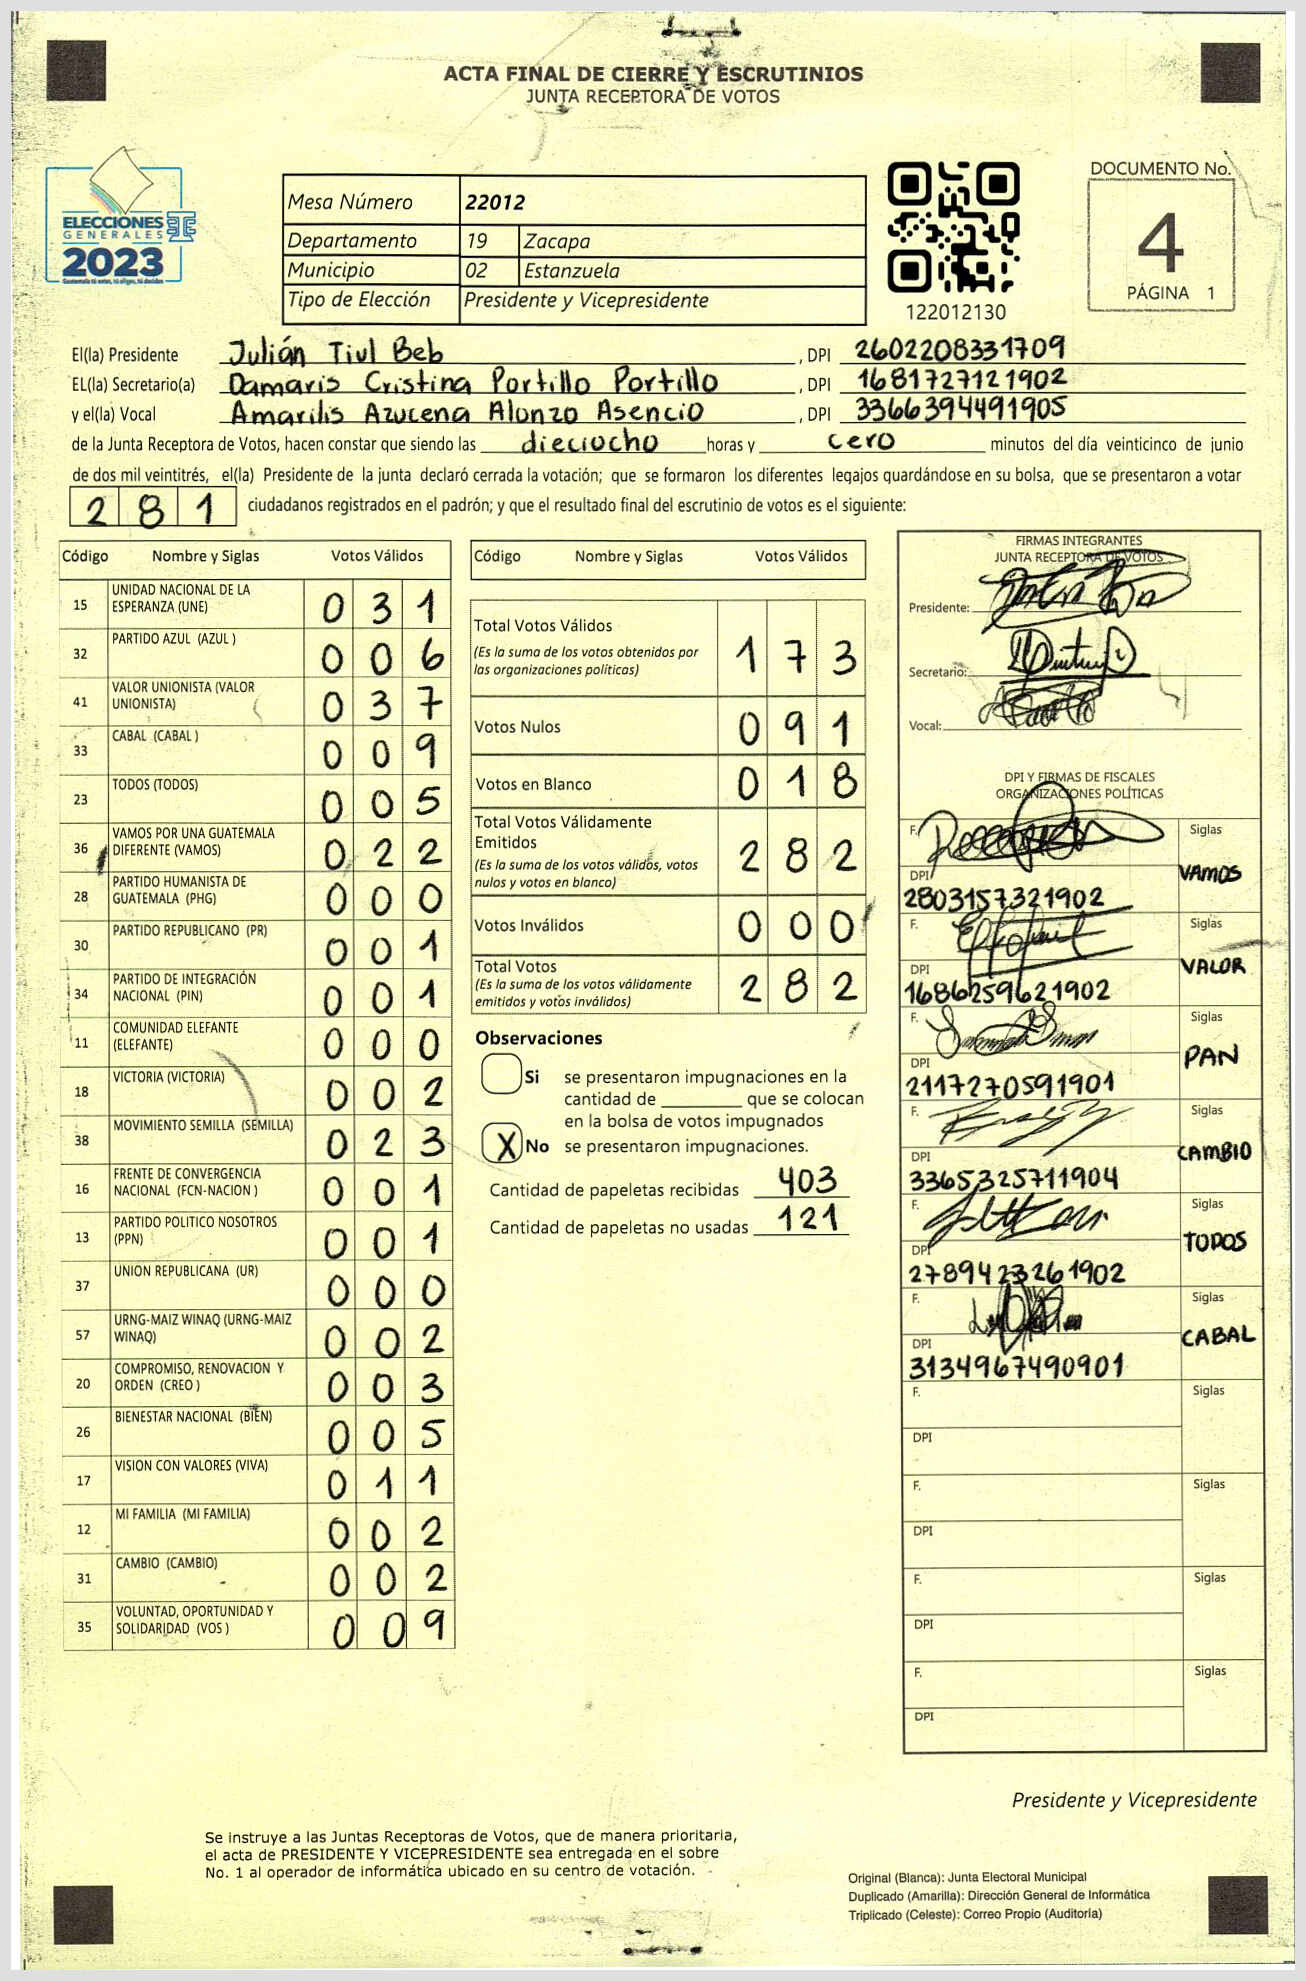 ACTA FINAL DE CIERRE Y ESCRUTINIOS
JUNTA RECEPTORA DE VOTOS
ELECCIONES
GENERALES
2023
Guatemala tú votas, tú eliges, tú decides
Mesa Número 22012
Departamento 19 Zacapa
Municipio 02 Estanzuela
Tipo de Elección Presidente y Vicepresidente
122012130
DOCUMENTO No.
4
PÁGINA 1
El(la) Presidente Julián Tiul Beb , DPI 2602208331709
EL(la) Secretario(a) Damaris Cristina Portillo Portillo , DPI 1681727121902
y el(la) Vocal Amarilis Azucena Alonzo Asencio , DPI 3366394491905
de la Junta Receptora de Votos, hacen constar que siendo las dieciocho horas y cero minutos del día veinticinco de junio
de dos mil veintitrés, el(la) Presidente de la junta declaró cerrada la votación; que se formaron los diferentes legajos guardándose en su bolsa, que se presentaron a votar
281 ciudadanos registrados en el padrón; y que el resultado final del escrutinio de votos es el siguiente:
Código Nombre y Siglas Votos Válidos
15 UNIDAD NACIONAL DE LA
ESPERANZA (UNE) 031
32 PARTIDO AZUL (AZUL ) 006
41 VALOR UNIONISTA (VALOR
UNIONISTA) 037
33 CABAL (CABAL ) 009
23 TODOS (TODOS) 005
36 VAMOS POR UNA GUATEMALA
DIFERENTE (VAMOS) 022
28 PARTIDO HUMANISTA DE
GUATEMALA (PHG) 000
30 PARTIDO REPUBLICANO (PR) 001
34 PARTIDO DE INTEGRACIÓN
NACIONAL (PIN) 001
11 COMUNIDAD ELEFANTE
(ELEFANTE) 000
18 VICTORIA (VICTORIA) 002
38 MOVIMIENTO SEMILLA (SEMILLA) 023
16 FRENTE DE CONVERGENCIA
NACIONAL (FCN-NACION ) 001
13 PARTIDO POLITICO NOSOTROS
(PPN) 001
37 UNION REPUBLICANA (UR) 000
57 URNG-MAIZ WINAQ (URNG-MAIZ
WINAQ) 002
20 COMPROMISO, RENOVACION Y
ORDEN (CREO ) 003
26 BIENESTAR NACIONAL (BIEN) 005
17 VISION CON VALORES (VIVA) 011
12 MI FAMILIA (MI FAMILIA) 002
31 CAMBIO (CAMBIO) 002
35 VOLUNTAD, OPORTUNIDAD Y
SOLIDARIDAD (VOS ) 009
Código Nombre y Siglas Votos Válidos
Total Votos Válidos
(Es la suma de los votos obtenidos por
las organizaciones políticas) 173
Votos Nulos 091
Votos en Blanco 018
Total Votos Válidamente
Emitidos
(Es la suma de los votos válidos, votos
nulos y votos en blanco) 282
Votos Inválidos 000
Total Votos
(Es la suma de los votos válidamente
emitidos y votos inválidos) 282
Observaciones
Si se presentaron impugnaciones en la
cantidad de ________ que se colocan
en la bolsa de votos impugnados
X No se presentaron impugnaciones.
Cantidad de papeletas recibidas 403
Cantidad de papeletas no usadas 121
FIRMAS INTEGRANTES
JUNTA RECEPTORA DE VOTOS
Presidente:
Secretario:
Vocal:
DPI Y FIRMAS DE FISCALES
ORGANIZACIONES POLÍTICAS
F. Siglas
VAMOS
DPI
2803157321902
F. Siglas
VALOR
DPI
1686259621902
F. Siglas
PAN
DPI
2117270591901
F. Siglas
CAMBIO
DPI
3365325711904
F. Siglas
TODOS
DPI
2789423261902
F. Siglas
CABAL
DPI
3134967490901
F. Siglas
DPI
F. Siglas
DPI
F. Siglas
DPI
F. Siglas
DPI
Presidente y Vicepresidente
Se instruye a las Juntas Receptoras de Votos, que de manera prioritaria,
el acta de PRESIDENTE Y VICEPRESIDENTE sea entregada en el sobre
No. 1 al operador de informática ubicado en su centro de votación.
Original (Blanca): Junta Electoral Municipal
Duplicado (Amarilla): Dirección General de Informática
Triplicado (Celeste): Correo Propio (Auditoría)